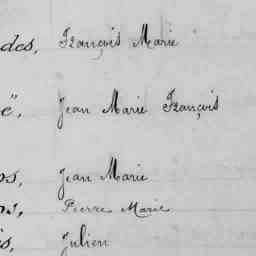 des, François Marie
e", Jean Marie François
os, Jean Marie
os, Pierre Marie
is, Julien